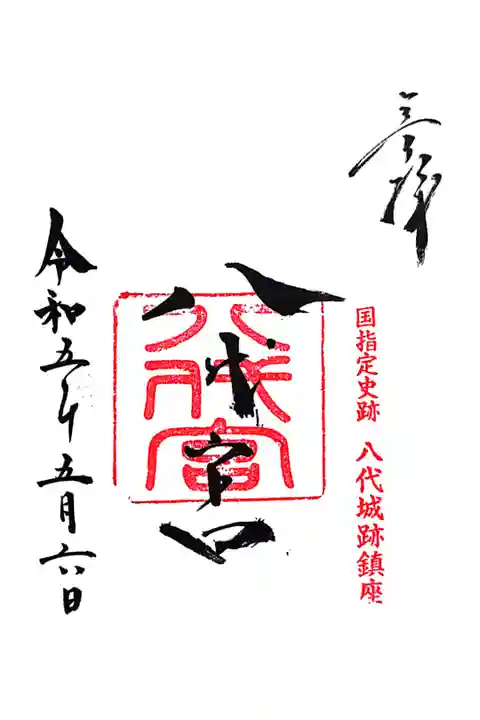 奉拝
国指定史跡 八代城跡鎮座
八代宮
八代宮
令和五年五月六日